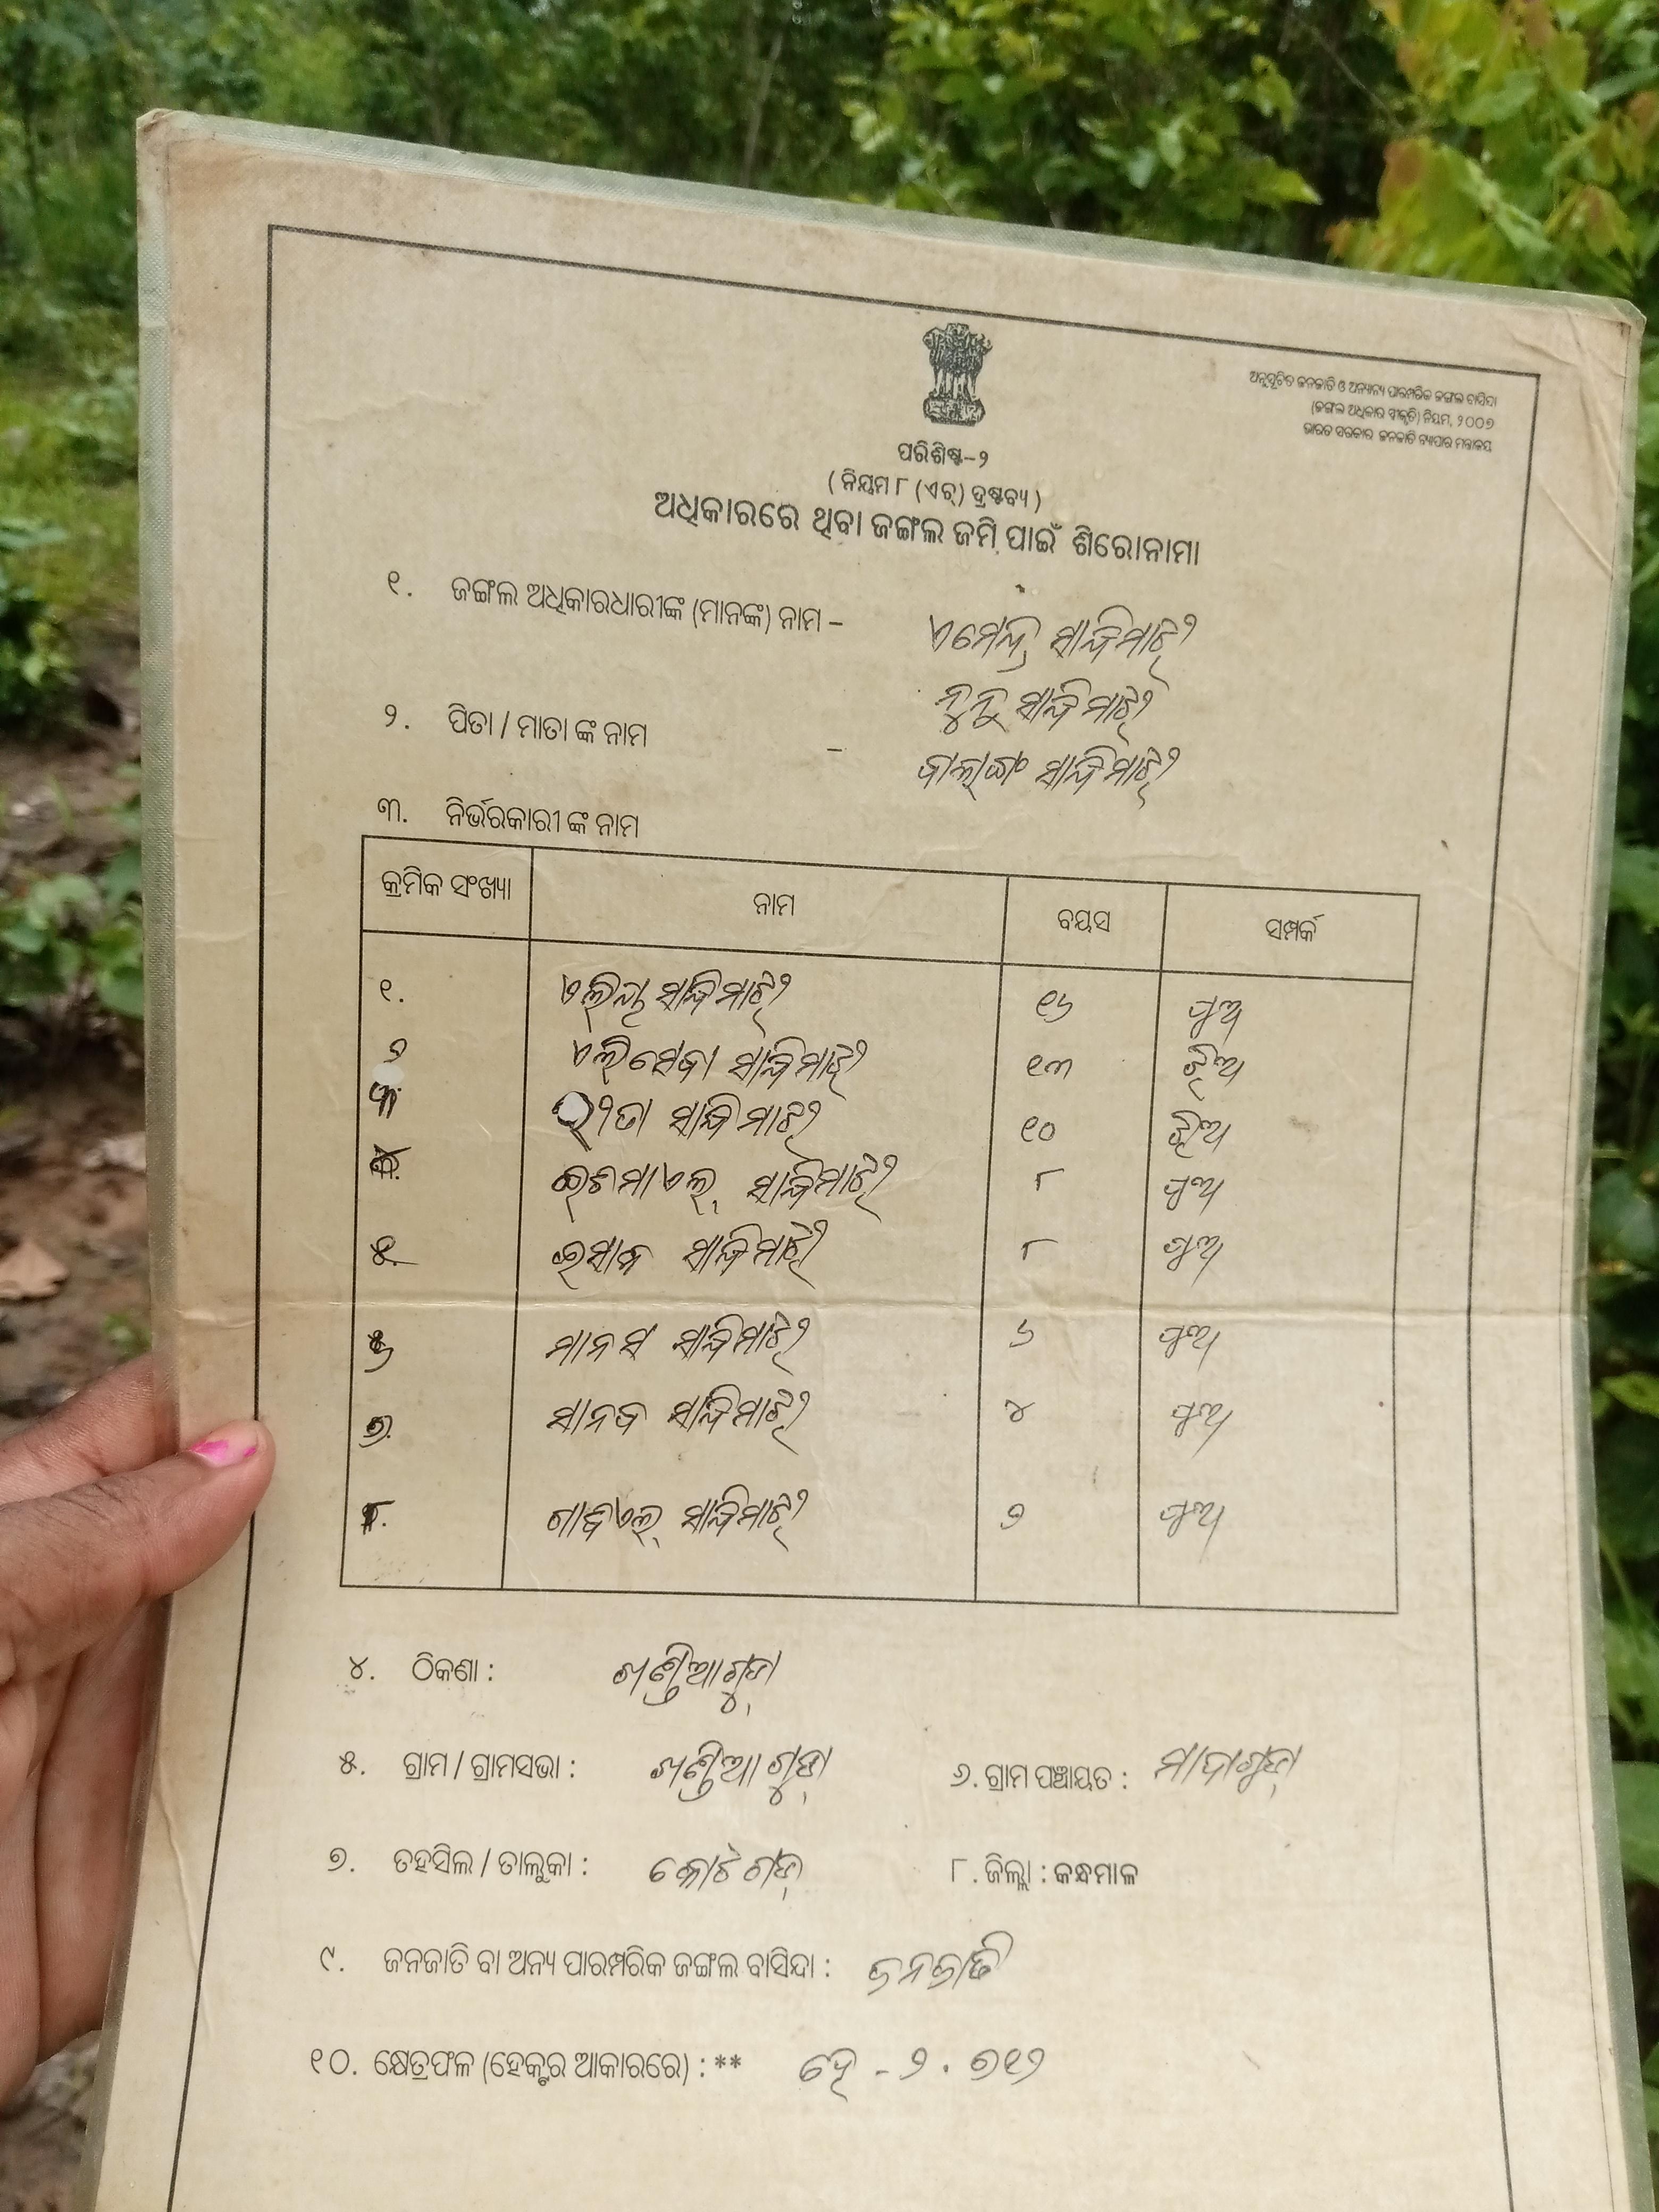 ଅନୁସୂଚିତ ଜନଜାତି ଓ ଅନ୍ୟାନ୍ୟ ପାରମ୍ପରିକ ଜଙ୍ଗଲ ବାସିନ୍ଦା
(ଜଙ୍ଗଲ ଅଧିକାର ସ୍ୱୀକୃତି) ନିୟମ, ୨୦୦୭
ଭାରତ ସରକାର ଜନଜାତି ବ୍ୟାପାର ମନ୍ତ୍ରାଳୟ
ପରିଶିଷ୍ଟ-୨
( ନିୟମ ୮ (ଏଚ୍) ଦ୍ରଷ୍ଟବ୍ୟ )
ଅଧିକାରରେ ଥିବା ଜଙ୍ଗଲ ଜମି ପାଇଁ ଶିରୋନାମା
୧. ଜଙ୍ଗଲ ଅଧିକାରଧାରୀଙ୍କ (ମାନଙ୍କ) ନାମ – ଏମେନ୍ଦ୍ର ସାନ୍ଦିମାଝି
ନୁନୁ ସାନ୍ଦିମାଝି
୨. ପିତା / ମାତା ଙ୍କ ନାମ – ସାନ୍ଦିମାଝି
୩. ନିର୍ଭରକାରୀ ଙ୍କ ନାମ
କ୍ରମିକ ସଂଖ୍ୟା ନାମ ବୟସ ସମ୍ପର୍କ
୧. ସାନ୍ଦିମାଝି ୧୬ ପୁଅ
୨ ଏଲିସେବା ସାନ୍ଦିମାଝି ୧୩ ଝିଅ
୩. ସାନ୍ଦିମାଝି ୧୦ ଝିଅ
୪. ଇଶମାଏଲ୍ ସାନ୍ଦିମାଝି ୮ ପୁଅ
୫. ଇସାକ ସାନ୍ଦିମାଝି ୮ ପୁଅ
୬ ମାନସ ସାନ୍ଦିମାଝି ୬ ପୁଅ
୭. ସାନବ ସାନ୍ଦିମାଝି ୪ ପୁଅ
୮. ଗାବ୍ରଏଲ୍ ସାନ୍ଦିମାଝି ୨ ପୁଅ
୪. ଠିକଣା : ଖଣ୍ଡିଆଗୁଡା
୫. ଗ୍ରାମ / ଗ୍ରାମସଭା : ଖଣ୍ଡିଆଗୁଡା ୬. ଗ୍ରାମ ପଞ୍ଚାୟତ : ମାଦାଗୁଡା
୭. ତହସିଲ / ତାଲୁକା : କୋଟଗଡ଼ ୮. ଜିଲ୍ଲା : କନ୍ଧମାଳ
୯. ଜନଜାତି ବା ଅନ୍ୟ ପାରମ୍ପରିକ ଜଙ୍ଗଲ ବାସିନ୍ଦା : ଜନଜାତି
୧୦. କ୍ଷେତ୍ରଫଳ (ହେକ୍ଟର ଆକାରରେ) : ** ହେ - ୨.୭୧୨